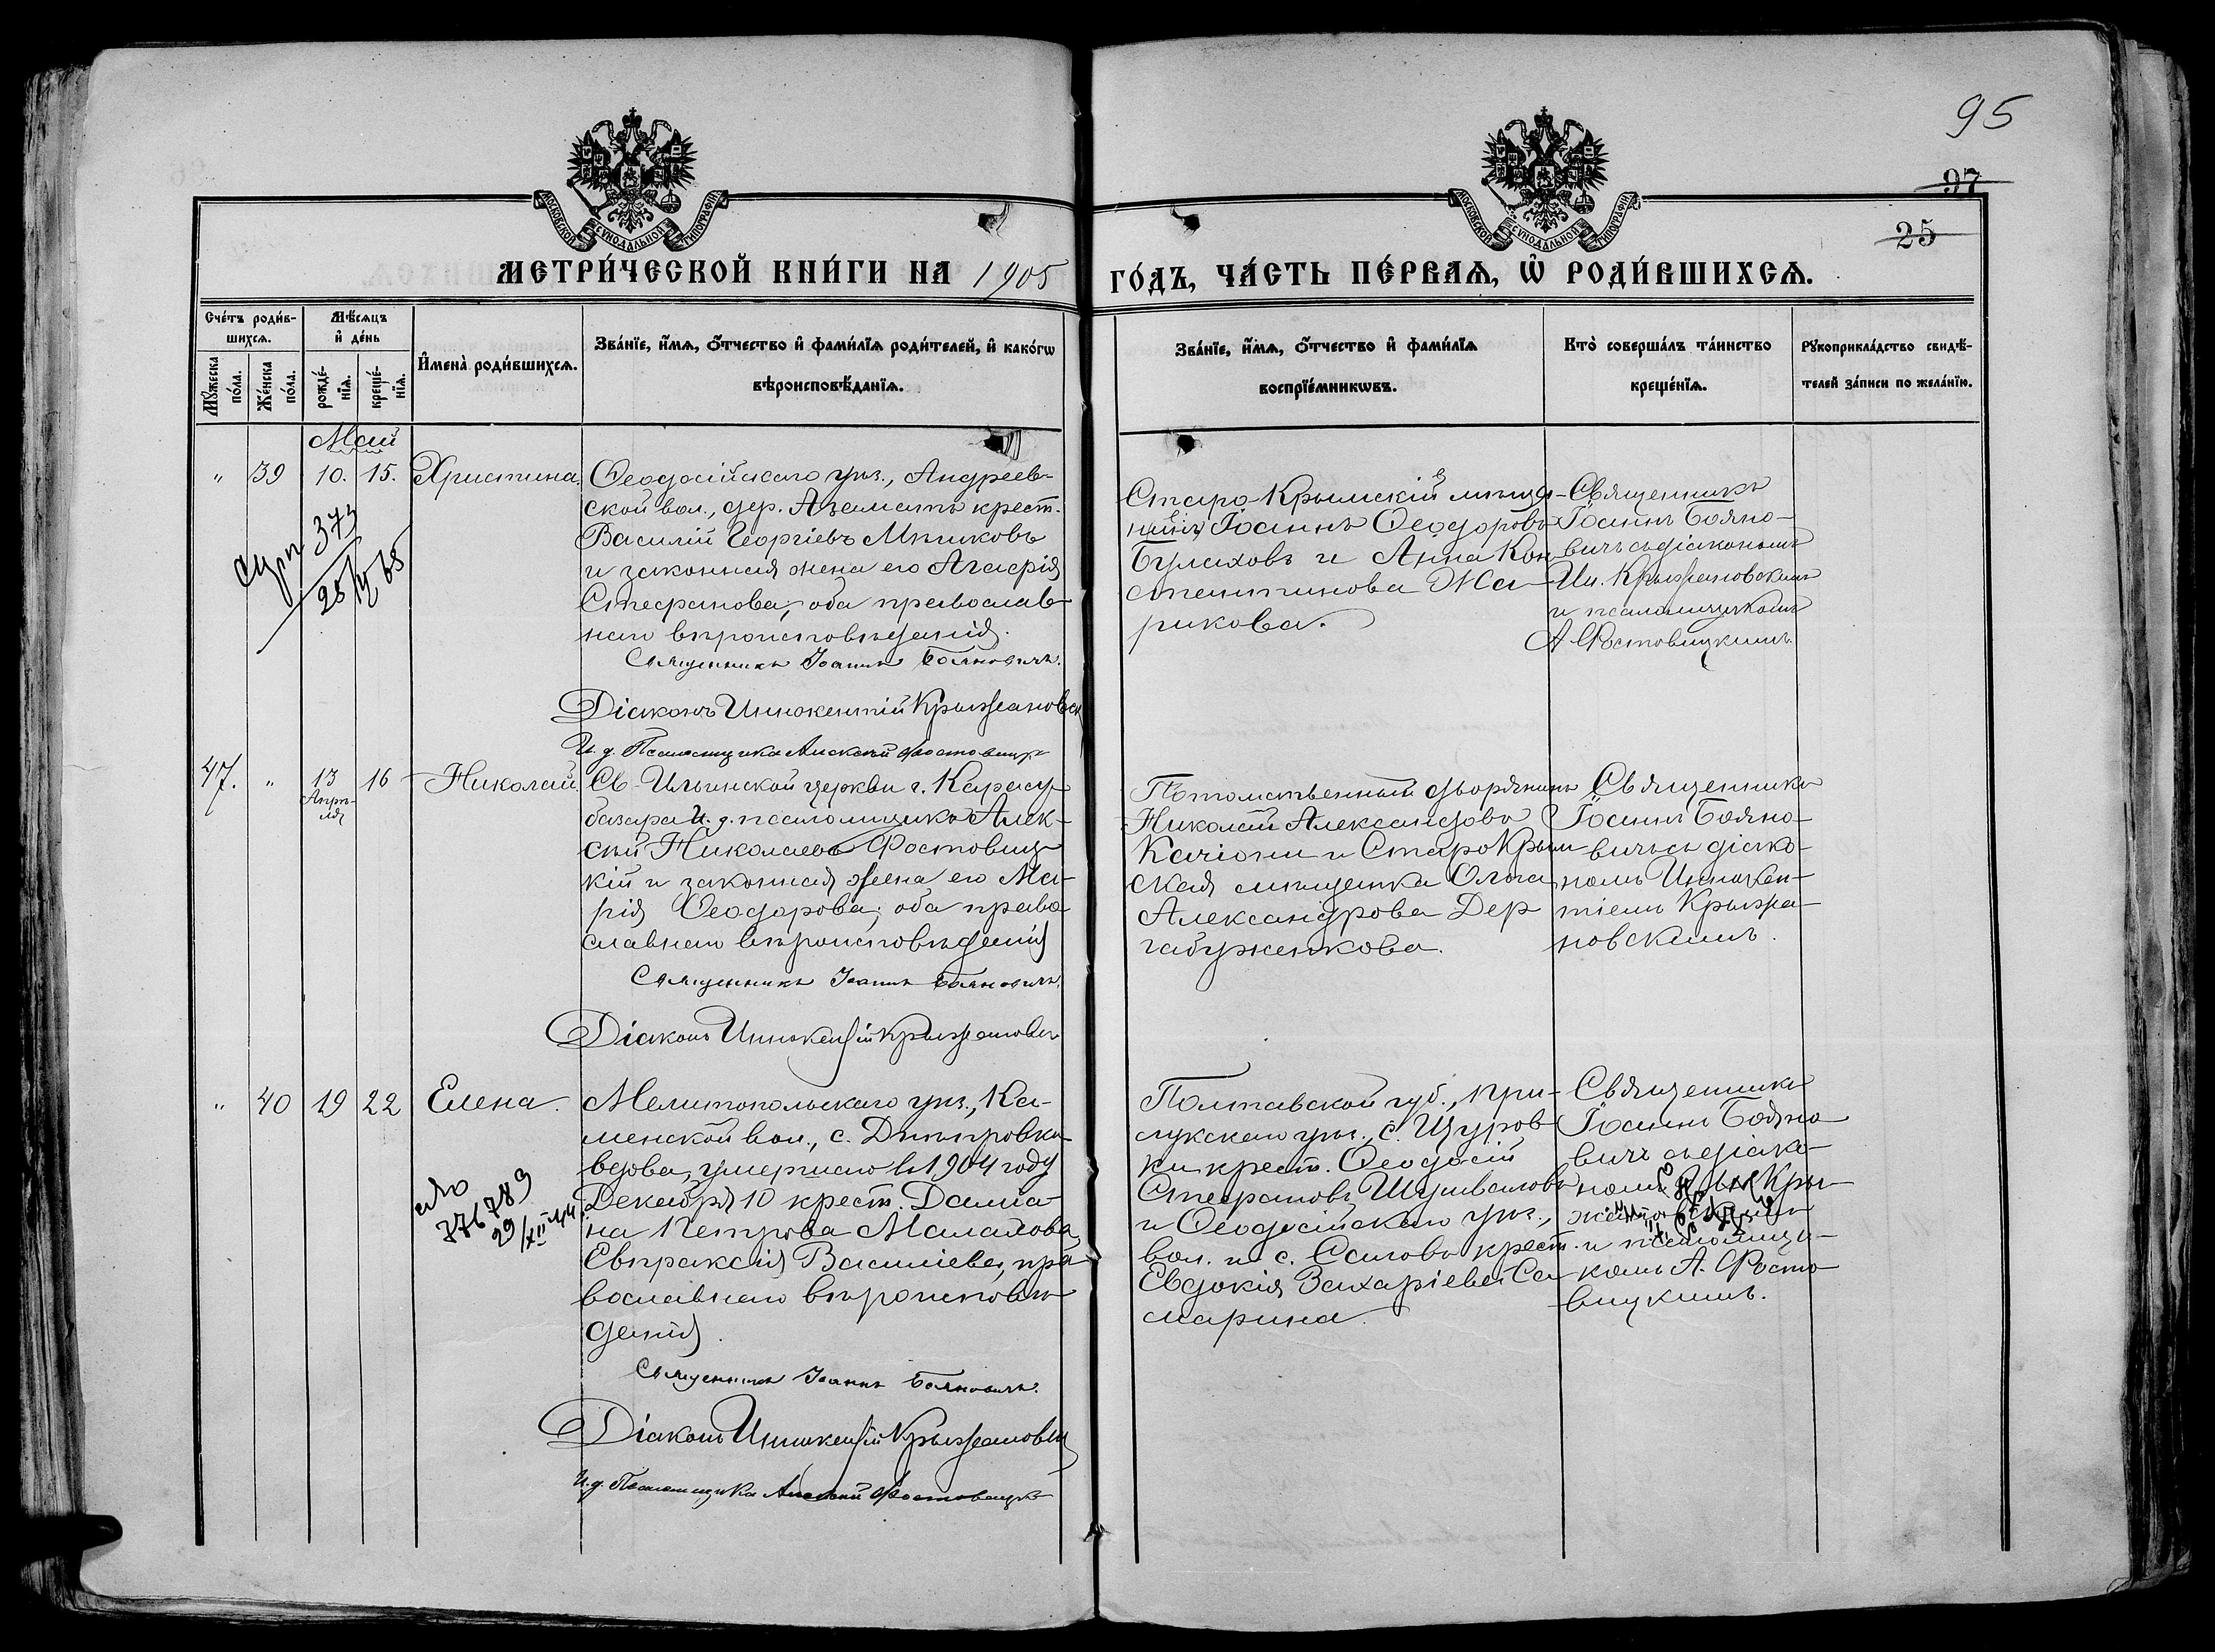 95
97
25
МОСКОВСКОЙ СУНОДАЛЬНОЙ ТИПОГРАФІИ
МОСКОВСКОЙ СУНОДАЛЬНОЙ ТИПОГРАФІИ
МЕТРИ́ЧЕСКОЙ КНИ́ГИ НА 1905
ГО́ДЪ, ЧА́СТЬ ПЕ́РВАѦ, Ѡ҆ РОДИ́ВШИХСѦ.
Сче́тъ роди́в-
шихсѧ.
Мꙋ́жеска по́ла.
Же́нска по́ла.
Мѣ́сѧцъ
и҆ де́нь
рожде́-
нїѧ.
креще́-
нїѧ.
И҆мена̀ роди́вшихсѧ.
Зва́нїе, и҆́мѧ, ѻ҆́тчество и҆ фами́лїѧ роди́телей, и҆ како́гѡ
вѣроисповѣ́данїѧ.
Зва́нїе, и҆́мѧ, ѻ҆́тчество и҆ фами́лїѧ
воспрїе́мникѡвъ.
Кто̀ соверша́лъ та́инство
креще́нїѧ.
Рꙋкоприкла́дство свидѣ́-
телей за́писи по жела́нїю.
Май
" 39 10. 15. Христина.
Ѳеодосійскаго уѣз., Андреев-
ской вол., дер. Азематъ крест.
Василій Георгіевъ
и законная жена его Агафія
Стефанова, оба православ-
наго вѣроисповѣданія.
Священникъ Іоаннъ Бояновичъ.
Діаконъ Иннокентій Крыжановск
И. д. Псаломщика Алексѣй Фостовицк
373
28/ 65
Старо-Крымскій мѣща-
нинъ Іоаннъ Ѳеодоровъ
Булаховъ и Анна Кон-
стантинова Жа-
рикова.
Священникъ
Іоаннъ Бояно-
вичъ съ діакономъ
Ин. Крыжановскимъ
и псаломщикомъ
А. Фостовицкимъ.
47. " 13 16 Николай.
Апрѣ-
ля
Св-Ильинской церкви г. Карасу-
базара И. д. псаломщика Алек-
сѣй Николаевъ Фостовиц-
кій и законная жена его Ма-
рія Ѳеодорова, оба право-
славнаго вѣроисповѣданія
Священникъ Іоаннъ Бояновичъ.
Діаконъ Иннокентій Крыжановск
Потомственный дворянинъ
Николай Александровъ
Качіони и СтароКрым-
ская мѣщанка Ольга
Александрова Дер
габуженкова.
Священникъ
Іоаннъ Бояно-
вичъ съ діако-
номъ Иннокен-
тіемъ Крыжа-
новскимъ.
" 40 19 22 Елена.
Мелитопольскаго уѣз., Ка-
менской вол., с. Днѣпровка
вдова, умершаго въ 1904 году
Декабря 10 крест. Даміа-
на Петрова
Евпраксія Васильева, пра-
вославнаго вѣроисповѣ-
данія.
Священникъ Іоаннъ Бояновичъ.
Діаконъ Иннокентій Крыжановск
И. д. Псаломщика Алексѣй Фостовицк
776789
29/XII 44
Полтавской губ., При-
лукскаго уѣз., с. Щуров-
ки крест. Ѳеодосій
Стефановъ
и Ѳеодосійскаго уѣз.,
вол. и с. Саловъ крест.
Евдокія Захаріева Са-
марина.
Священникъ
Іоаннъ Бояно
вичъ съ діако-
номъ Ин. Кры-
жановскимъ
и псаломщи-
комъ А. Фосто-
вицкимъ.